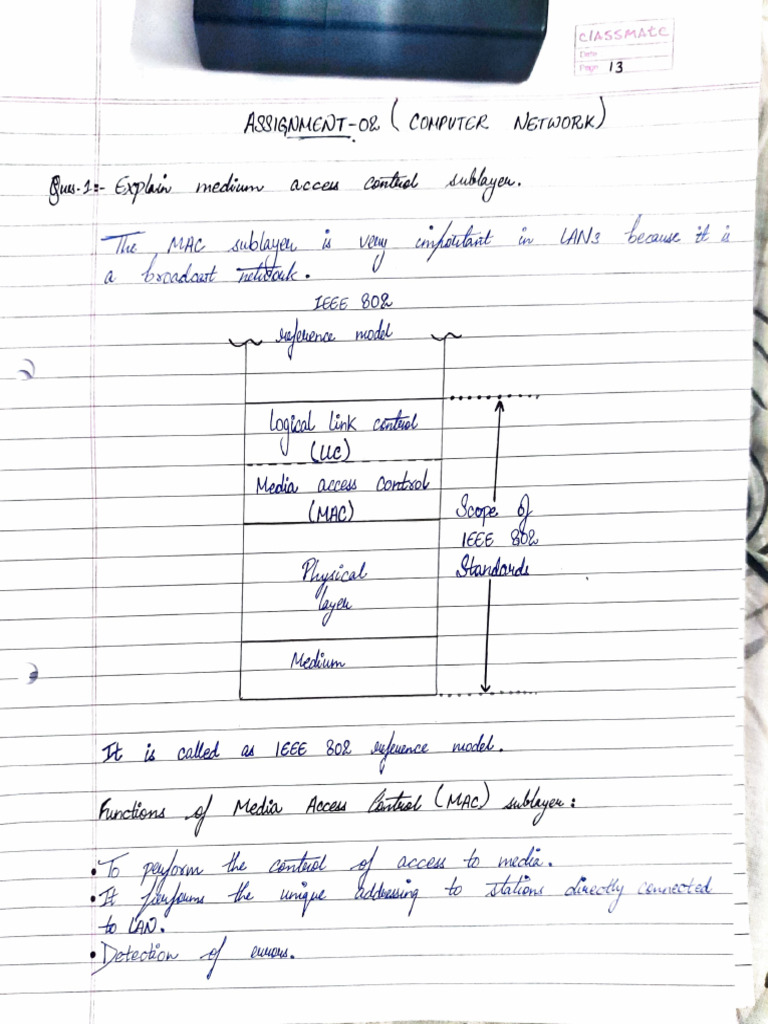 CLASSMATE
Date
Page 13
ASSIGNMENT-02 (COMPUTER NETWORK)
Ques.1:- Explain medium access control sublayer.
The MAC sublayer is very important in LANs because it is
a broadcast network.
IEEE 802
reference model
Logical link control
(LLC)
Media access control
(MAC)
Scope of
IEEE 802
Standards
Physical
layer
Medium
It is called as IEEE 802 reference model.
Functions of Media Access Control (MAC) sublayer:
• To perform the control of access to media.
• It performs the unique addressing to stations directly connected
to LAN.
• Detection of errors.